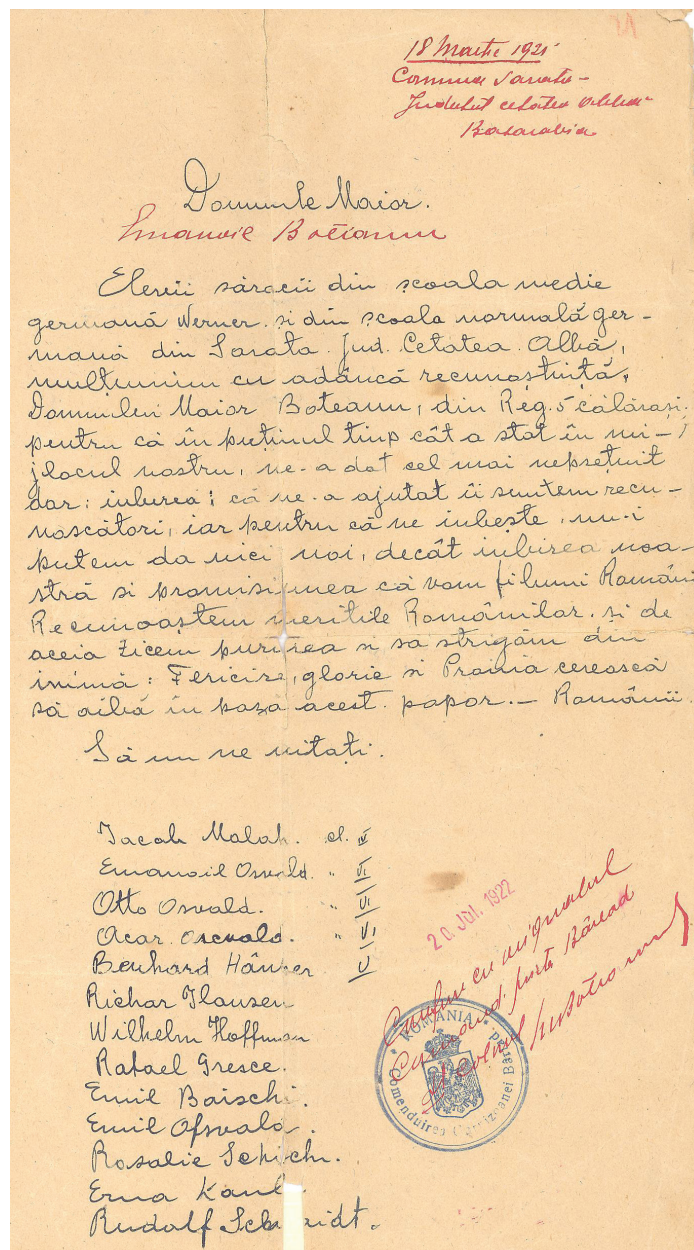 21
18 Martie 1921
Comuna Sarata -
Județul cetatea Albă
Basarabia
Domnule Maior.
Emanoil Boteanu
Elevii săracii din școala medie
germană Werner și din școala normală ger-
mană din Sarata Jud. Cetatea Albă,
mulțumim cu adâncă recunoștință,
Domnului Maior Boteanu, din Reg. 5 călărași.
pentru că în puținul timp cât a stat în mi-
jlocul nostru, ne-a dat cel mai neprețuit
dar: iubirea; că ne-a ajutat îi suntem recu-
noscători, iar pentru că ne iubește, nu-i
putem da nici noi, decât iubirea noa-
stră si promisiunea că vom fi buni Români
Recunoaștem meritile Românilor și de
aceia zicem purirea si sa strigăm din
inimă: Fericire, glorie si Pronia cerească
să aibă în pază acest popor. — Românii.
Să nu ne uitați.
Iacob Malah. cl. IV
Emanoil Osvald. " VI
Otto Osvald. " VI
Oscar Osvald. " VI
Benhard Hänser V
Richar Ilausen
Wilhelm Hoffman
Rafael Gresce.
Emil Baischi.
Emil Osvald.
Rosalie Schich.
Erna Kaul
Rudolf Schmidt.
20. JUL. 1922
Conform cu originalul
Comand. pieței Bârlad
Colonel
ROMÂNIA
Comenduirea Garnizoanei Bârlad